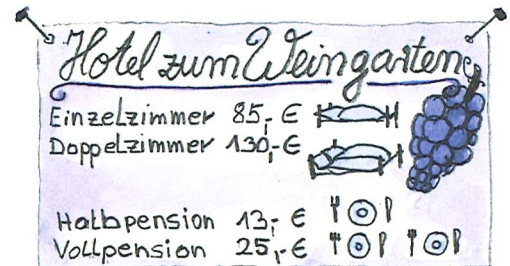 Hotel zum Weingarten
Einzelzimmer 85,- €
Doppelzimmer 130,- €
Halbpension 13,- €
Vollpension 25,- €